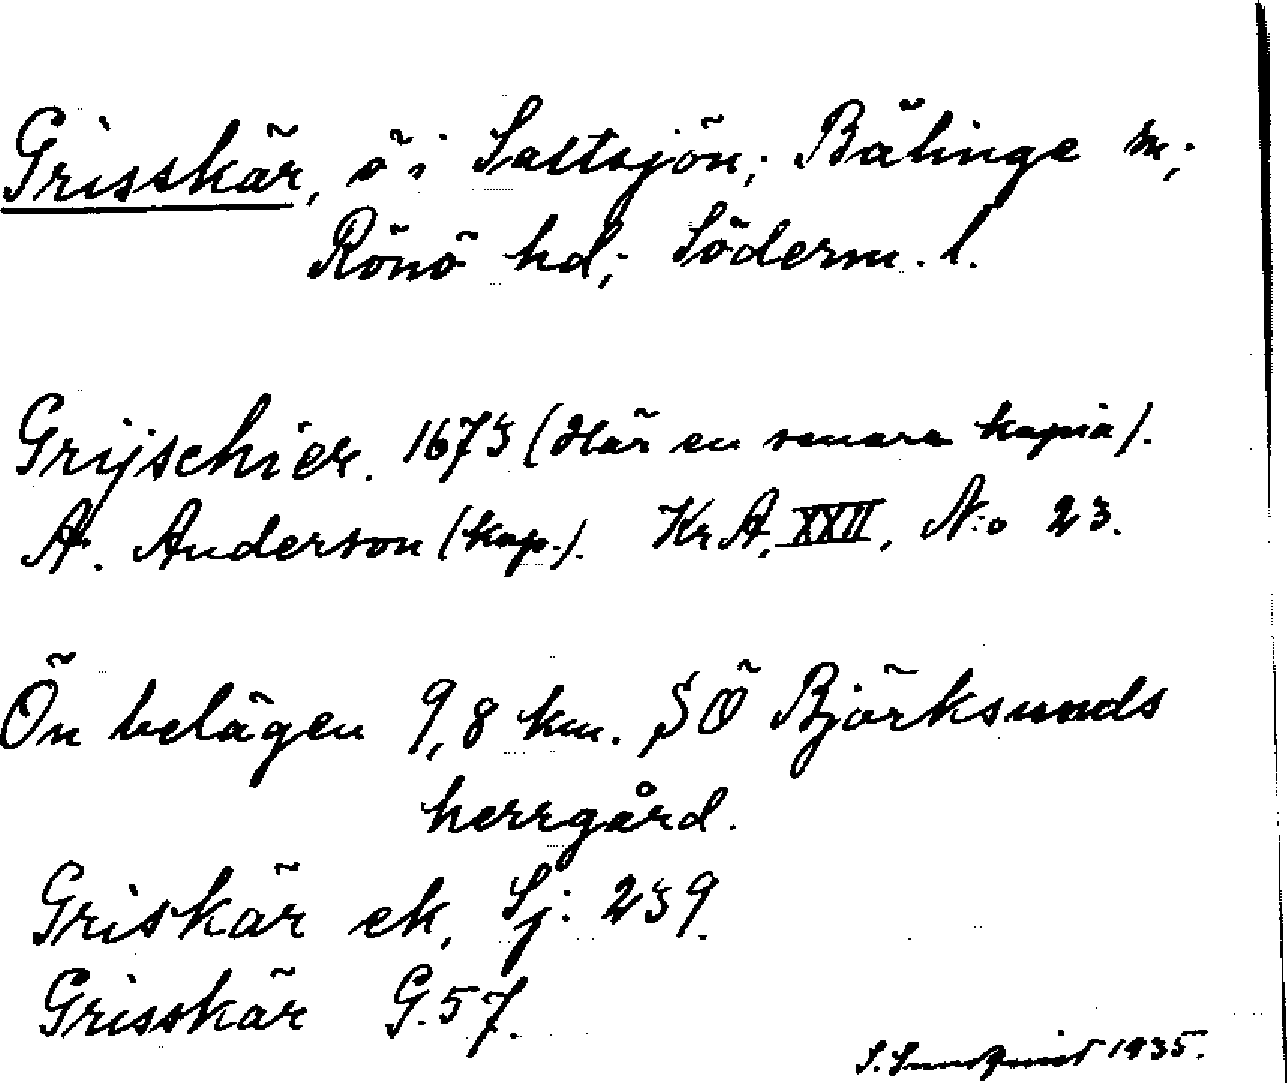 Grisskär, ö i Saltsjön; Bälinge sn;
Rönö hd; Söderm. l.
Grijschier. 1673 (Här en senare kopia).
A. Anderson (kop.). Kr A, XXII, N:o 23.
Ön belägen 9,8 km. SÖ Björksunds
herrgård.
Griskär ek, Sj: 239.
Grisskär G. 57.
S. Sundquist 1935.